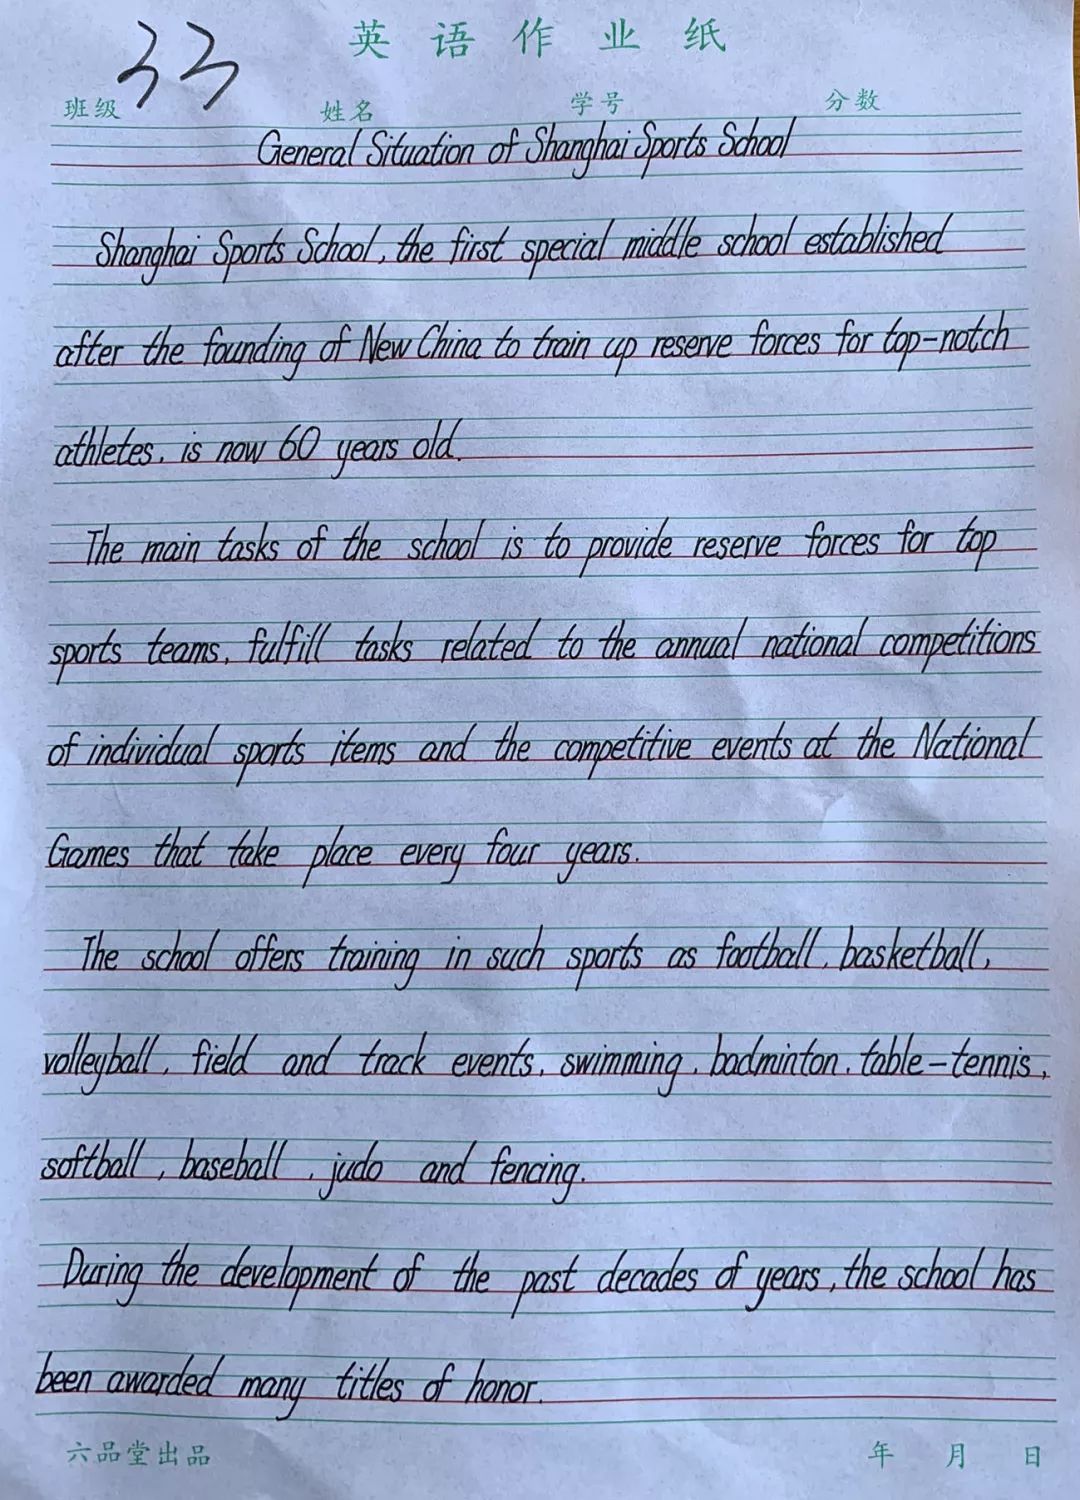 英语作业纸
33
班级 姓名 学号 分数
General Situation of Shanghai Sports School
Shanghai Sports School, the first special middle school established
after the founding of New China to train up reserve forces for top-notch
athletes, is now 60 years old.
The main tasks of the school is to provide reserve forces for top
sports teams, fulfill tasks related to the annual national competitions
of individual sports items and the competitive events at the National
Games that take place every four years.
The school offers training in such sports as football, basketball,
volleyball, field and track events, swimming, badminton, table-tennis,
softball, baseball, judo and fencing.
During the development of the past decades of years, the school has
been awarded many titles of honor.
六品堂出品 年 月 日